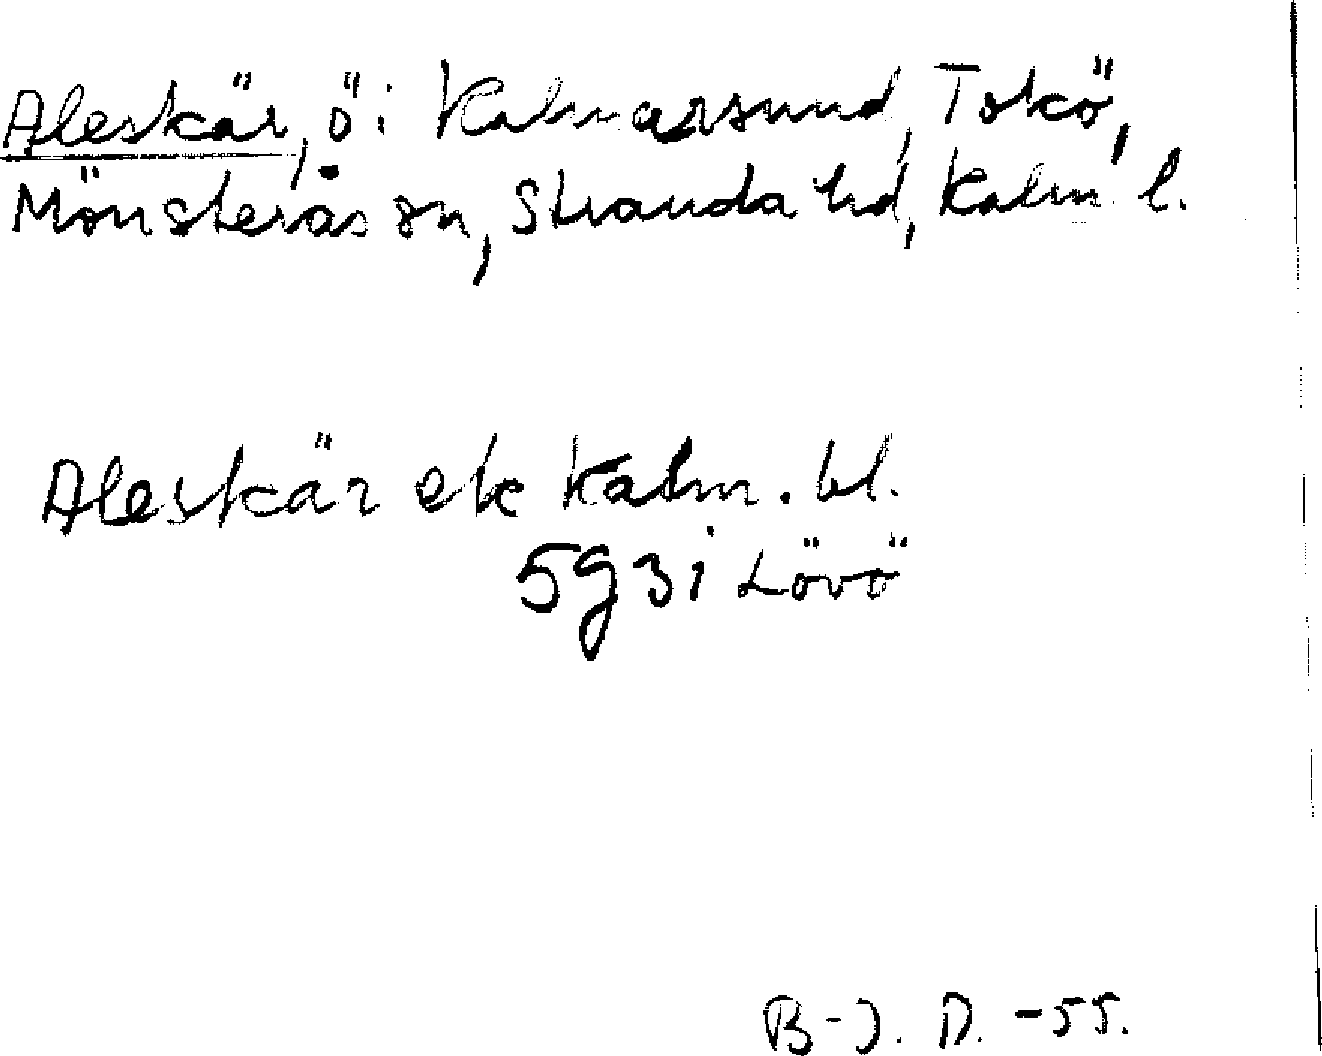 Aleskär, ö i Kalmarsund, Tokö,
Mönsterås sn, Stranda hd, Kalm l.
Aleskär ek Kalm. bl.
5g3i Lövö
B-J. D. -55.